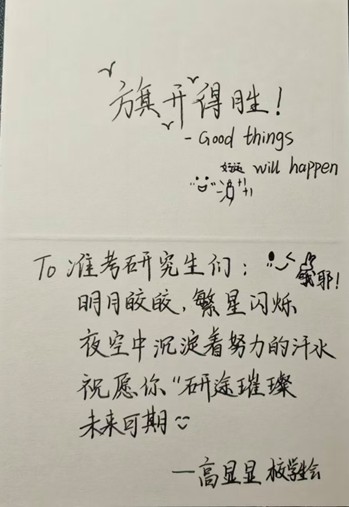 旗开得胜！
- Good things
will happen
好运
+1
+1
To 准考研究生们：
耶！
明月皎皎，繁星闪烁
夜空中沉淀着努力的汗水
祝愿你“研途璀璨
未来可期
—高显显 校学生会